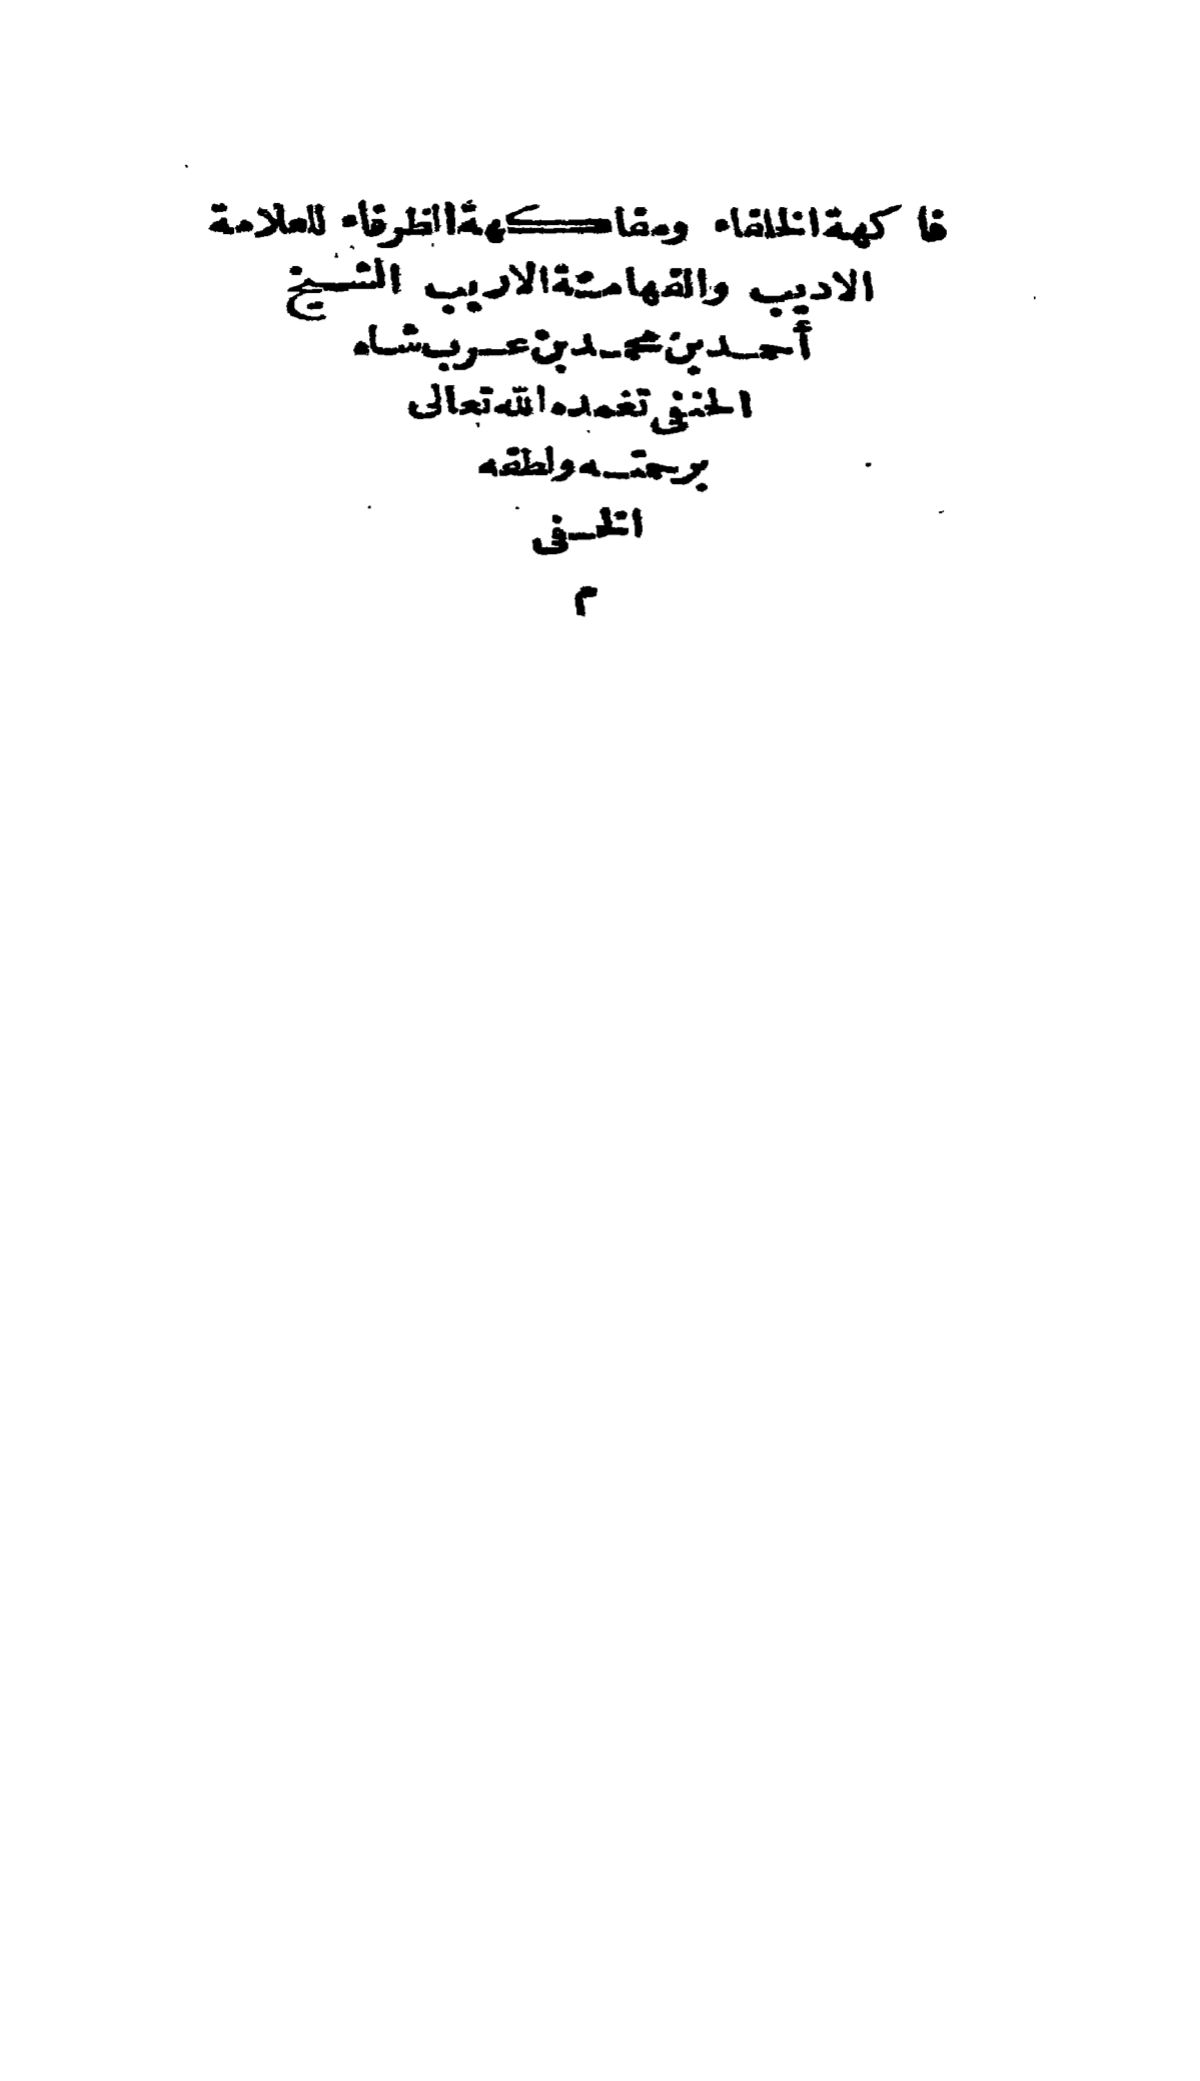 فاكهة الخلفاء ومفاكهة الظرفاء للعلامة
الاديب والفهامة الاريب الشيخ
أحمد بن محمد بن عرب شاه
الحنفى تغمده الله تعالى
برحمته ولطفه
الخفى
م